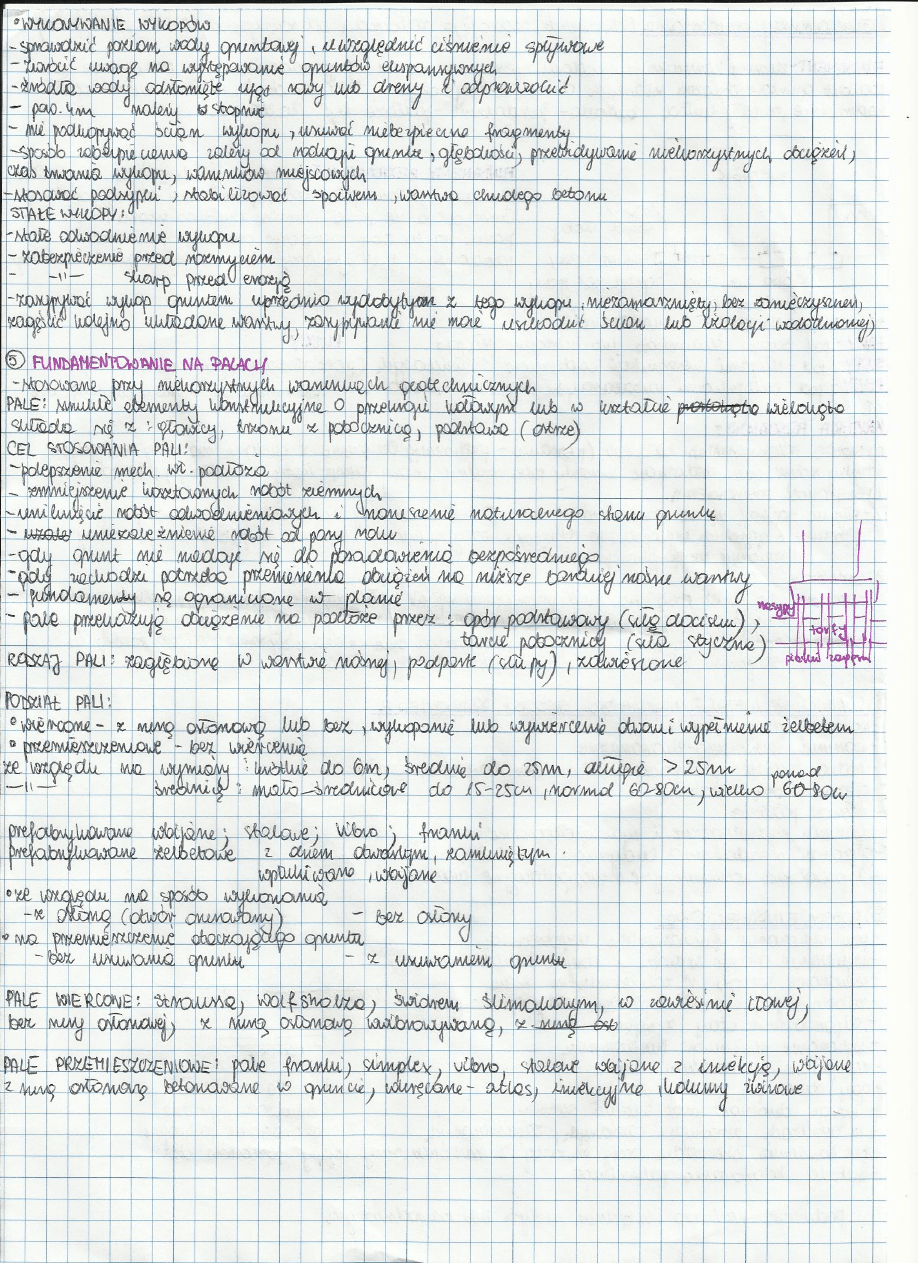 ° WYKONYWANIE WYKOPÓW
- sprawdzić poziom wody gruntowej, uwzględnić ciśnienie spływowe
- zwrócić uwagę na występowanie gruntów ekspansywnych
- źródła wody odsłonięte ująć rowy lub dreny i odprowadzić
- pow. 4m należy w stopnie
- nie podkopywać ścian wykopu, usuwać niebezpieczne fragmenty
- sposób zabezpieczenia zależy od rodzaju gruntu, głębokości, przewidywanie niekorzystnych obciążeń,
czas trwania wykopu, warunków miejscowych
- stosować podsypki, stabilizować spoiwem, warstwa chudego betonu
STAŁE WYKOPY:
- stałe odwodnienie wykopu
- zabezpieczenie przed rozmyciem
- -11- skarp przed erozją
- zasypywać wykop gruntem uprzednio wydobytym z tego wykopu, niezamarznięty, bez zanieczyszczeń,
zagęścić kolejno układane warstwy, zasypywanie nie może uszkodzić ścian lub izolacji wodochronnej,
⑤ FUNDAMENTOWANIE NA PALACH
- stosowane przy niekorzystnych warunkach geotechnicznych
PALE: smukłe elementy konstrukcyjne o przekroju kołowym lub w kształcie wielokąta
składa się z: głowicy, trzonu z pobocznicą, podstawa (ostrze)
CEL STOSOWANIA PALI:
- polepszenie mech. wł. podłoża
- zmniejszenie kosztownych robót ziemnych
- uniknięcie robót odwodnieniowych i naruszenie naturalnego stanu gruntu
- uniezależnienie robót od pory roku
- gdy grunt nie nadaje się do posadowienia bezpośredniego
- gdy zachodzi potrzeba przeniesienia obciążeń na niższe bardziej nośne warstwy
- fundamenty są ograniczone w planie
- pale przekazują obciążenie na podłoże przez: opór podstawowy (siłą docisku),
tarcie pobocznicy (siła styczna)
nasypy
torfy
piaski
RODZAJ PALI: zagłębione w warstwie nośnej, podparte (słupy), zawieszone
PODZIAŁ PALI:
° wiercone - z rurą osłonową lub bez, wykopanie lub wywiercenie otworu i wypełnienie żelbetem
° przemieszczeniowe - bez wiercenia
ze względu na wymiary: krótkie do 6m, średnie do 25m, długie > 25m
-11- średnicę: mało-średnicowe do 15-25cm, normal 60-80cm, wielko ponad 60-80cm
prefabrykowane wbijane; stalowe; vibro; franki
prefabrykowane żelbetowe z dnem otwartym, zamkniętym.
wpłukiwane, wbijane
° ze względu na sposób wykonania
- z osłoną (otwór orurowany) - bez osłony
° na przemieszczenie otaczającego gruntu
- bez usuwania gruntu - z usuwaniem gruntu
PALE WIERCONE: straussa, wolfsholza, świdrem ślimakowym, w zawiesinie iłowej,
bez rury osłonowej, z rurą osłonową wwibrowywaną, z rurą osł
PALE PRZEMIESZCZENIOWE: pale franki, simplex, vibro, stalowe wbijane z iniekcją, wbijane
z rurą osłonową betonowane w gruncie, wkręcane - atlas, iniekcyjne, kolumny żwirowe